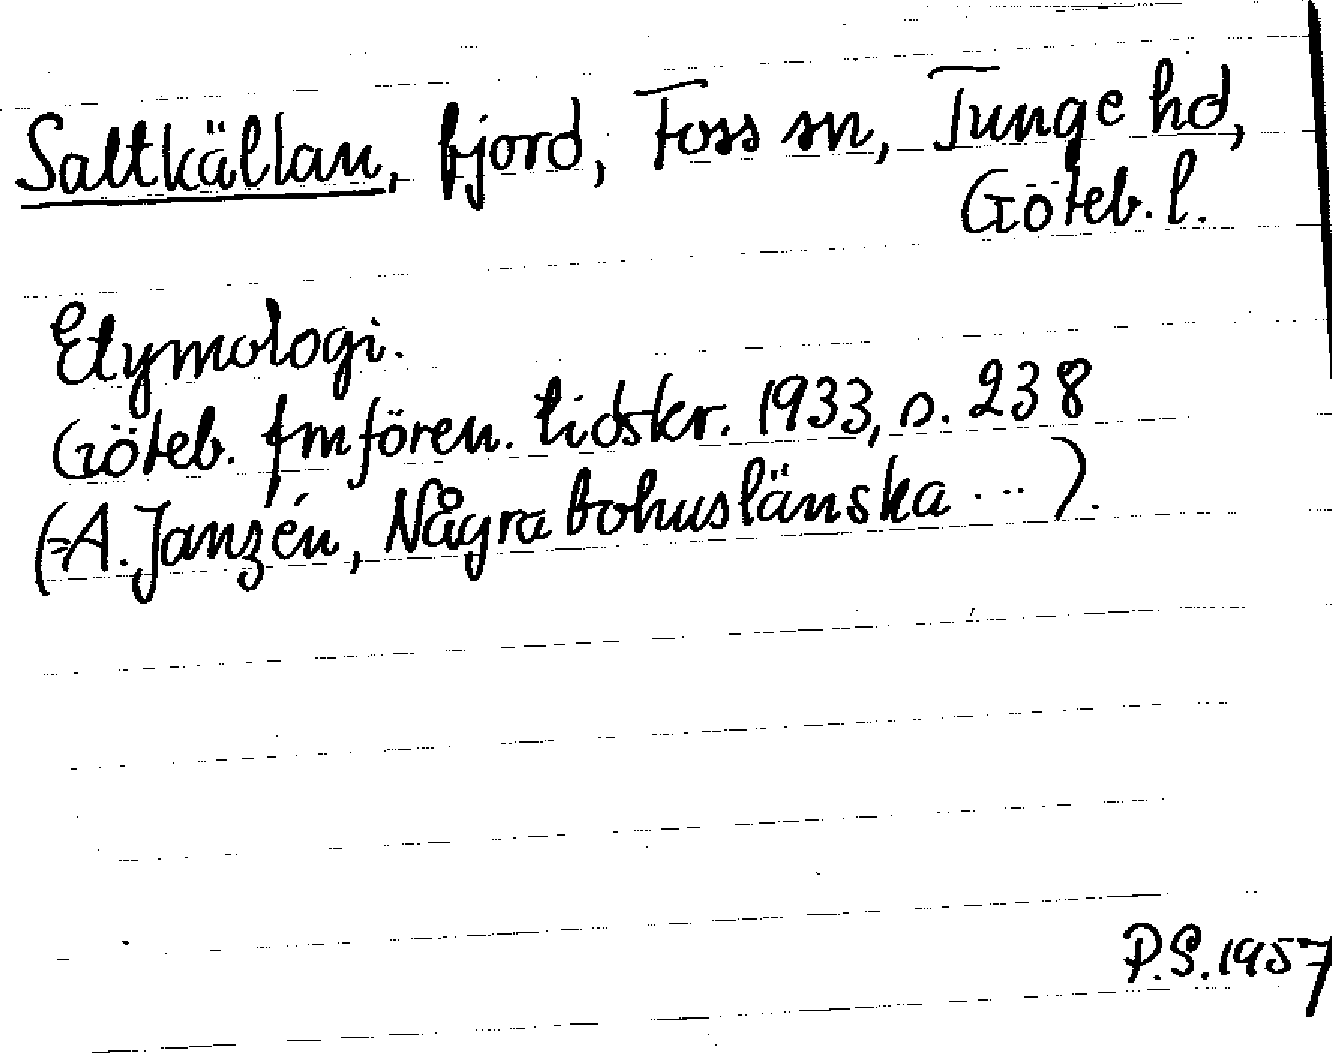 Saltkällan, fjord, Foss sn, Tunge hd,
Göteb. l.
Etymologi.
Göteb. fmfören. tidskr. 1933, s. 238
(A. Janzén, Några bohuslänska ...).
P.S. 1957